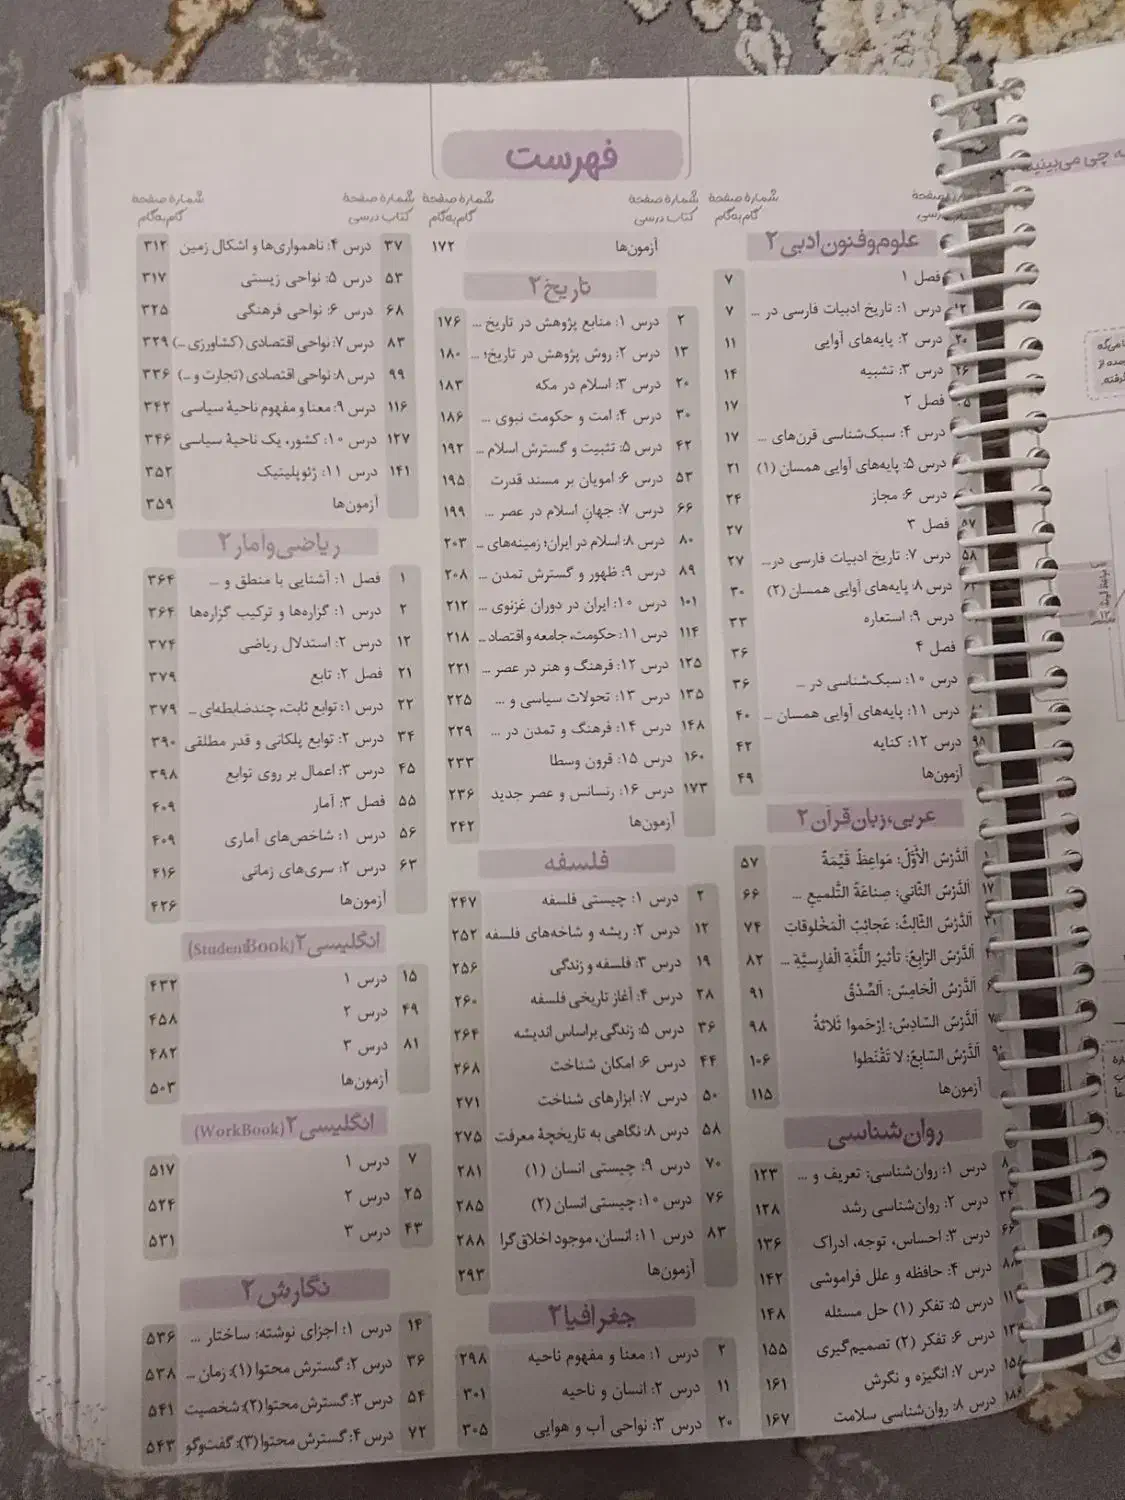 فهرست
شمارهٔ صفحهٔ گام‌به‌گام
علوم و فنون ادبی ۲
فصل ۱ ۷
درس ۱: تاریخ ادبیات فارسی در ... ۷
درس ۲: پایه‌های آوایی ۱۱
درس ۳: تشبیه ۱۴
فصل ۲ ۱۷
درس ۴: سبک‌شناسی قرن‌های ... ۱۷
درس ۵: پایه‌های آوایی همسان (۱) ۲۱
درس ۶: مجاز ۲۴
فصل ۳ ۲۷
۵۸ درس ۷: تاریخ ادبیات فارسی در... ۲۷
درس ۸: پایه‌های آوایی همسان (۲) ۳۰
درس ۹: استعاره ۳۳
فصل ۴ ۳۶
درس ۱۰: سبک‌شناسی در ... ۳۶
درس ۱۱: پایه‌های آوایی همسان ... ۴۰
درس ۱۲: کنایه ۴۲
آزمون‌ها ۴۹
عربی، زبان قرآن ۲
اَلدَّرْسُ الْأَوَّلُ: مَواعِظُ قَیِّمَةٌ ۵۷
۱۷ اَلدَّرْسُ الثّاني: صِناعَةُ التَّلمیعِ ... ۶۶
اَلدَّرْسُ الثّالِثُ: عَجائِبُ الْمَخْلوقاتِ ۷۴
اَلدَّرْسُ الرّابِعُ: تَأثیرُ اللُّغَةِ الْفارِسیَّةِ ... ۸۲
اَلدَّرْسُ الْخامِسُ: اَلصِّدْقُ ۹۱
اَلدَّرْسُ السّادِسُ: اِرْحَموا ثَلاثَةً ۹۸
اَلدَّرْسُ السّابِعُ: لا تَقْنَطوا ۱۰۶
آزمون‌ها ۱۱۵
روان‌شناسی
۸ درس ۱: روان‌شناسی: تعریف و ... ۱۲۳
۳۴ درس ۲: روان‌شناسی رشد ۱۲۸
۶۶ درس ۳: احساس، توجه، ادراک ۱۳۶
درس ۴: حافظه و علل فراموشی ۱۴۲
درس ۵: تفکر (۱) حل مسئله ۱۴۸
درس ۶: تفکر (۲) تصمیم‌گیری ۱۵۵
درس ۷: انگیزه و نگرش ۱۶۱
۱۸۶ درس ۸: روان‌شناسی سلامت ۱۶۷
شمارهٔ صفحهٔ کتاب درسی شمارهٔ صفحهٔ گام‌به‌گام
آزمون‌ها ۱۷۲
تاریخ ۲
۲ درس ۱: منابع پژوهش در تاریخ ... ۱۷۶
۱۳ درس ۲: روش پژوهش در تاریخ؛ ... ۱۸۰
۲۰ درس ۳: اسلام در مکه ۱۸۳
۳۰ درس ۴: امت و حکومت نبوی ... ۱۸۶
۴۲ درس ۵: تثبیت و گسترش اسلام ... ۱۹۲
۵۳ درس ۶: امویان بر مسند قدرت ۱۹۵
۶۶ درس ۷: جهانِ اسلام در عصر ... ۱۹۹
۸۰ درس ۸: اسلام در ایران؛ زمینه‌های ... ۲۰۳
۸۹ درس ۹: ظهور و گسترش تمدن ... ۲۰۸
۱۰۱ درس ۱۰: ایران در دوران غزنوی ... ۲۱۲
۱۱۴ درس ۱۱: حکومت، جامعه و اقتصاد ... ۲۱۸
۱۲۵ درس ۱۲: فرهنگ و هنر در عصر ... ۲۲۱
۱۳۵ درس ۱۳: تحولات سیاسی و ... ۲۲۵
۱۴۸ درس ۱۴: فرهنگ و تمدن در ... ۲۲۹
۱۶۰ درس ۱۵: قرون وسطا ۲۳۳
۱۷۳ درس ۱۶: رنسانس و عصر جدید ۲۳۶
آزمون‌ها ۲۴۲
فلسفه
۲ درس ۱: چیستی فلسفه ۲۴۷
۱۲ درس ۲: ریشه و شاخه‌های فلسفه ۲۵۲
۱۹ درس ۳: فلسفه و زندگی ۲۵۶
۲۸ درس ۴: آغاز تاریخی فلسفه ۲۶۰
۳۶ درس ۵: زندگی براساس اندیشه ۲۶۴
۴۴ درس ۶: امکان شناخت ۲۶۸
۵۰ درس ۷: ابزارهای شناخت ۲۷۱
۵۸ درس ۸: نگاهی به تاریخچهٔ معرفت ۲۷۵
۷۰ درس ۹: چیستی انسان (۱) ۲۸۱
۷۶ درس ۱۰: چیستی انسان (۲) ۲۸۵
۸۳ درس ۱۱: انسان، موجود اخلاق‌گرا ۲۸۸
آزمون‌ها ۲۹۳
جغرافیا ۲
۲ درس ۱: معنا و مفهوم ناحیه ۲۹۸
۱۱ درس ۲: انسان و ناحیه ۳۰۱
۲۰ درس ۳: نواحی آب و هوایی ۳۰۵
شمارهٔ صفحهٔ کتاب درسی شمارهٔ صفحهٔ گام‌به‌گام
۳۷ درس ۴: ناهمواری‌ها و اشکال زمین ۳۱۲
۵۳ درس ۵: نواحی زیستی ۳۱۷
۶۸ درس ۶: نواحی فرهنگی ۳۲۵
۸۳ درس ۷: نواحی اقتصادی (کشاورزی ...) ۳۲۹
۹۹ درس ۸: نواحی اقتصادی (تجارت و ...) ۳۳۶
۱۱۶ درس ۹: معنا و مفهوم ناحیهٔ سیاسی ۳۴۲
۱۲۷ درس ۱۰: کشور، یک ناحیهٔ سیاسی ۳۴۶
۱۴۱ درس ۱۱: ژئوپلیتیک ۳۵۲
آزمون‌ها ۳۵۹
ریاضی و آمار ۲
۱ فصل ۱: آشنایی با منطق و ... ۳۶۴
۲ درس ۱: گزاره‌ها و ترکیب گزاره‌ها ۳۶۴
۱۲ درس ۲: استدلال ریاضی ۳۷۴
۲۱ فصل ۲: تابع ۳۷۹
۲۲ درس ۱: توابع ثابت، چندضابطه‌ای ... ۳۷۹
۳۴ درس ۲: توابع پلکانی و قدر مطلقی ۳۹۰
۴۵ درس ۳: اعمال بر روی توابع ۳۹۸
۵۵ فصل ۳: آمار ۴۰۹
۵۶ درس ۱: شاخص‌های آماری ۴۰۹
۶۳ درس ۲: سری‌های زمانی ۴۱۶
آزمون‌ها ۴۲۶
انگلیسی ۲ (StudentBook)
۱۵ درس ۱ ۴۳۲
۴۹ درس ۲ ۴۵۸
۸۱ درس ۳ ۴۸۲
آزمون‌ها ۵۰۳
انگلیسی ۲ (WorkBook)
۷ درس ۱ ۵۱۷
۲۵ درس ۲ ۵۲۴
۴۳ درس ۳ ۵۳۱
نگارش ۲
۱۴ درس ۱: اجزای نوشته: ساختار ... ۵۳۶
۳۶ درس ۲: گسترش محتوا (۱): زمان ... ۵۳۸
۵۴ درس ۳: گسترش محتوا (۲): شخصیت ۵۴۱
۷۲ درس ۴: گسترش محتوا (۳): گفت‌وگو ۵۴۳
چی می‌بینید